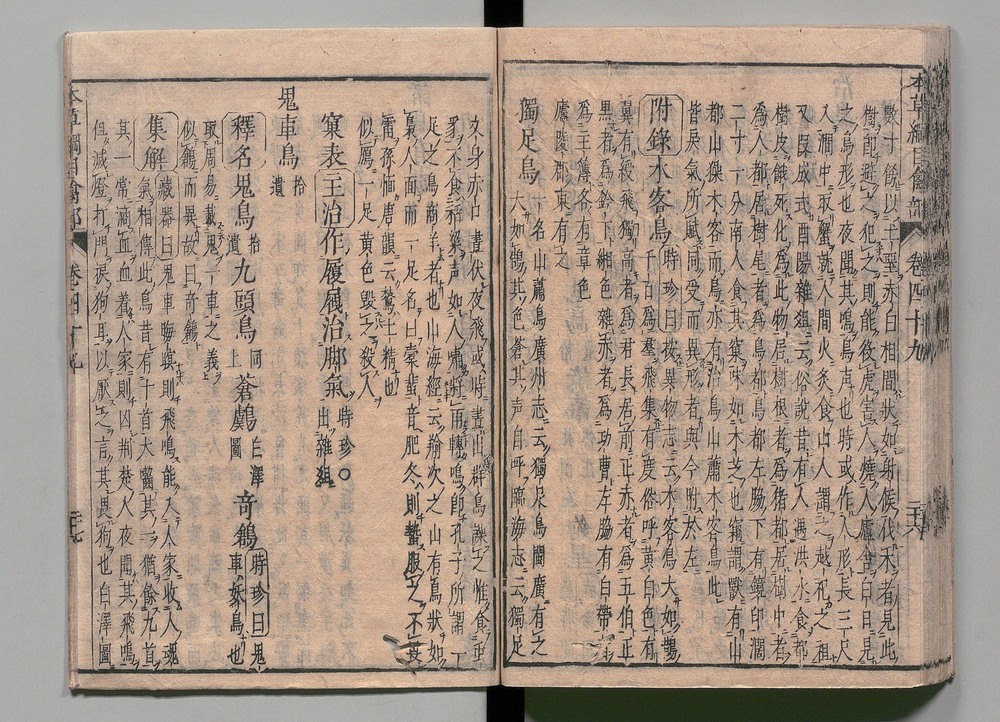 本草綱目禽部 卷四十九 二十六
數寸餘以土堊赤白相間狀如射候伐木者見此
樹即避之犯之則能役虎害人燒人廬舍白日見
之鳥形也夜聞其鳴鳥声也時或作人形長三尺
入澗中取蟹就人間火炙食山人謂之越祝之祖
又段成式酉陽雜俎云俗説昔有人遇洪水食都
樹皮餓死化為此物居樹根者為猪都居樹中者
為人都居樹尾者為鳥都鳥都左脇下有鏡印濶
二寸一分南人食其窠味如木芝也竊謂獸有山
都山𤢖木客而鳥亦有治鳥山蕭木客鳥此
皆戾氣所賦同受而異形者與今附於左
附錄木客鳥時珍曰按異物志云木客鳥大如鵲
千百為羣飛集有度俗呼黄白色有
翼有綬飛獨高者為君長居前正赤者為五伯正
黒者為鈴下緗色雜赤者為功曹左脇有白帶
者為主簿各有章色
廬陵郡東有之
獨足鳥一名山蕭鳥廣州志云獨足鳥閩廣有之
大如鵠其色蒼其声自呼臨海志云獨足
文身赤口晝伏夜飛或時晝出群鳥譟之惟食虫
豸不食稻粱声如人嘯將雨轉鳴即孔子所謂一
足之鳥商羊者也山海經云羭次之山有鳥狀如
梟人面而一足名曰橐蜚音肥冬則蟄服之不畏
雷孫愐唐韻云䳤土精也
似鴈一足黄色毀之殺人
窠表主治作履屧治脚氣時珍○出雜俎
鬼車鳥拾遺
釋名鬼鳥拾遺九頭鳥同上蒼鸆白澤圖奇鶬時珍曰鬼車妖鳥也
取周易載鬼一車之義
似鶬而異故曰奇鶬
集解藏器曰鬼車晦暝則飛鳴能入人家收人魂
氣相傳此鳥昔有十首犬囓其一猶餘九首
其一常滴血血着人家則凶荆楚人夜聞其飛鳴
但滅燈打門捩狗耳以厭之言其畏狗也白澤圖
本草綱目禽部 卷四十九 二十七